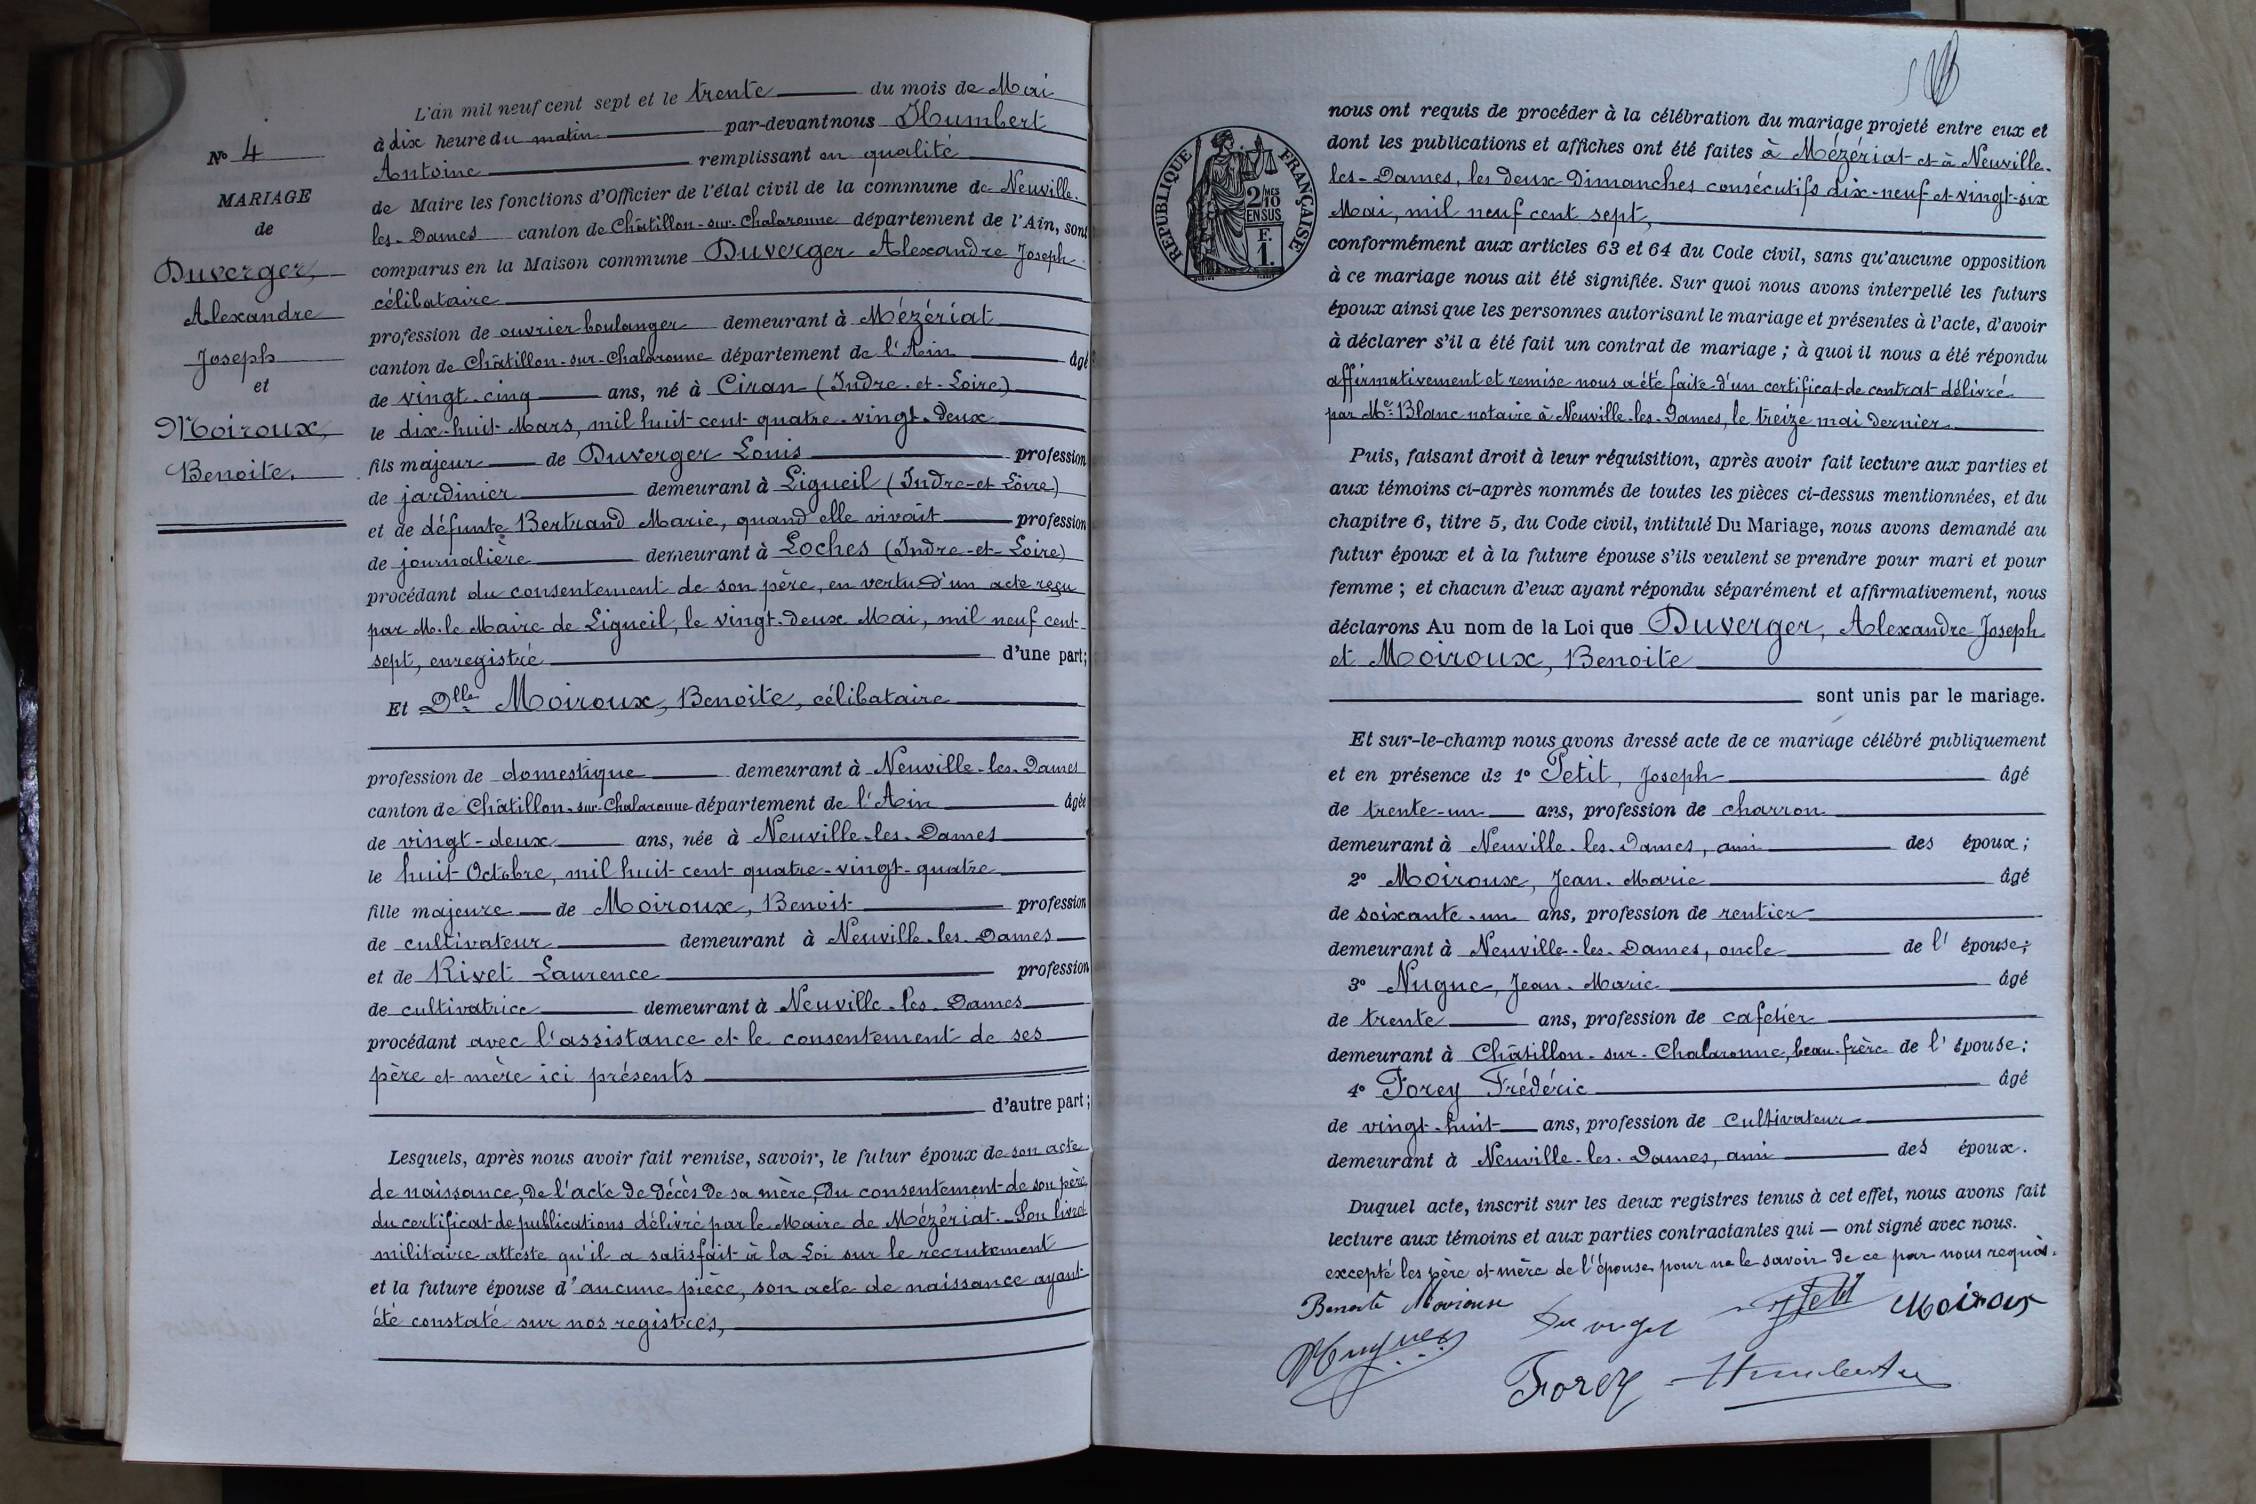 N° 4
MARIAGE
de
Duverger,
Alexandre
Joseph
et
Moiroux,
Benoite.
L'an mil neuf cent sept et le trente du mois de Mai
à dix heure du matin par-devant nous Humbert
Antoine remplissant en qualité
de Maire les fonctions d'Officier de l'état civil de la commune de Neuville-
les-Dames canton de Châtillon-sur-Chalaronne département de l'Ain, sont
comparus en la Maison commune Duverger Alexandre Joseph
célibataire
profession de ouvrier boulanger demeurant à Mézériat
canton de Châtillon-sur-Chalaronne département de l'Ain âgé
de vingt-cinq ans, né à Ciran (Indre-et-Loire)
le dix-huit Mars, mil huit cent quatre-vingt-deux
fils majeur de Duverger Louis profession
de jardinier demeurant à Ligueil (Indre-et-Loire)
et de défunte Bertrand Marie, quand elle vivait profession
de journalière demeurant à Loches (Indre-et-Loire)
procédant du consentement de son père, en vertu d'un acte reçu
par M. le Maire de Ligueil, le vingt-deux Mai, mil neuf cent-
sept, enregistré d'une part;
Et Dlle Moiroux, Benoite, célibataire
profession de domestique demeurant à Neuville-les-Dames
canton de Châtillon-sur-Chalaronne département de l'Ain âgée
de vingt-deux ans, née à Neuville-les-Dames
le huit Octobre, mil huit cent quatre-vingt-quatre
fille majeure de Moiroux, Benoit profession
de cultivateur demeurant à Neuville-les-Dames
et de Rivet Laurence profession
de cultivatrice demeurant à Neuville-les-Dames
procédant avec l'assistance et le consentement de ses
père et mère ici présents
d'autre part;
Lesquels, après nous avoir fait remise, savoir, le futur époux de son acte
de naissance, de l'acte de décès de sa mère, du consentement de son père,
du certificat de publications délivré par le Maire de Mézériat. Son livret
militaire atteste qu'il a satisfait à la Loi sur le recrutement
et la future épouse d'aucune pièce, son acte de naissance ayant
été constaté sur nos registres,
RÉPUBLIQUE FRANÇAISE
2/10
MES
EN SUS
F.
1.
nous ont requis de procéder à la célébration du mariage projeté entre eux et
dont les publications et affiches ont été faites à Mézériat et à Neuville-
les-Dames, les deux Dimanches consécutifs dix-neuf et vingt-six
Mai, mil neuf cent sept,
conformément aux articles 63 et 64 du Code civil, sans qu'aucune opposition
à ce mariage nous ait été signifiée. Sur quoi nous avons interpellé les futurs
époux ainsi que les personnes autorisant le mariage et présentes à l'acte, d'avoir
à déclarer s'il a été fait un contrat de mariage; à quoi il nous a été répondu
affirmativement et remise nous a été faite d'un certificat de contrat délivré
par Me Blanc notaire à Neuville-les-Dames, le treize mai dernier
Puis, faisant droit à leur réquisition, après avoir fait lecture aux parties et
aux témoins ci-après nommés de toutes les pièces ci-dessus mentionnées, et du
chapitre 6, titre 5, du Code civil, intitulé Du Mariage, nous avons demandé au
futur époux et à la future épouse s'ils veulent se prendre pour mari et pour
femme; et chacun d'eux ayant répondu séparément et affirmativement, nous
déclarons Au nom de la Loi que Duverger, Alexandre Joseph
et Moiroux, Benoite
sont unis par le mariage.
Et sur-le-champ nous avons dressé acte de ce mariage célébré publiquement
et en présence de 1° Petit, Joseph âgé
de trente-un ans, profession de charron
demeurant à Neuville-les-Dames, ami des époux;
2° Moiroux, Jean-Marie âgé
de soixante-un ans, profession de rentier
demeurant à Neuville-les-Dames, oncle de l'épouse;
3° Nugue, Jean-Marie âgé
de trente ans, profession de cafetier
demeurant à Châtillon-sur-Chalaronne, beau-frère de l'épouse;
4° Forey Frédéric âgé
de vingt-huit ans, profession de cultivateur
demeurant à Neuville-les-Dames, ami des époux.
Duquel acte, inscrit sur les deux registres tenus à cet effet, nous avons fait
lecture aux témoins et aux parties contractantes qui — ont signé avec nous.
excepté les père et mère de l'épouse pour ne le savoir de ce par nous requis.
Benoite Moiroux Duverger Petit Moiroux
Nugue Forey Humbert